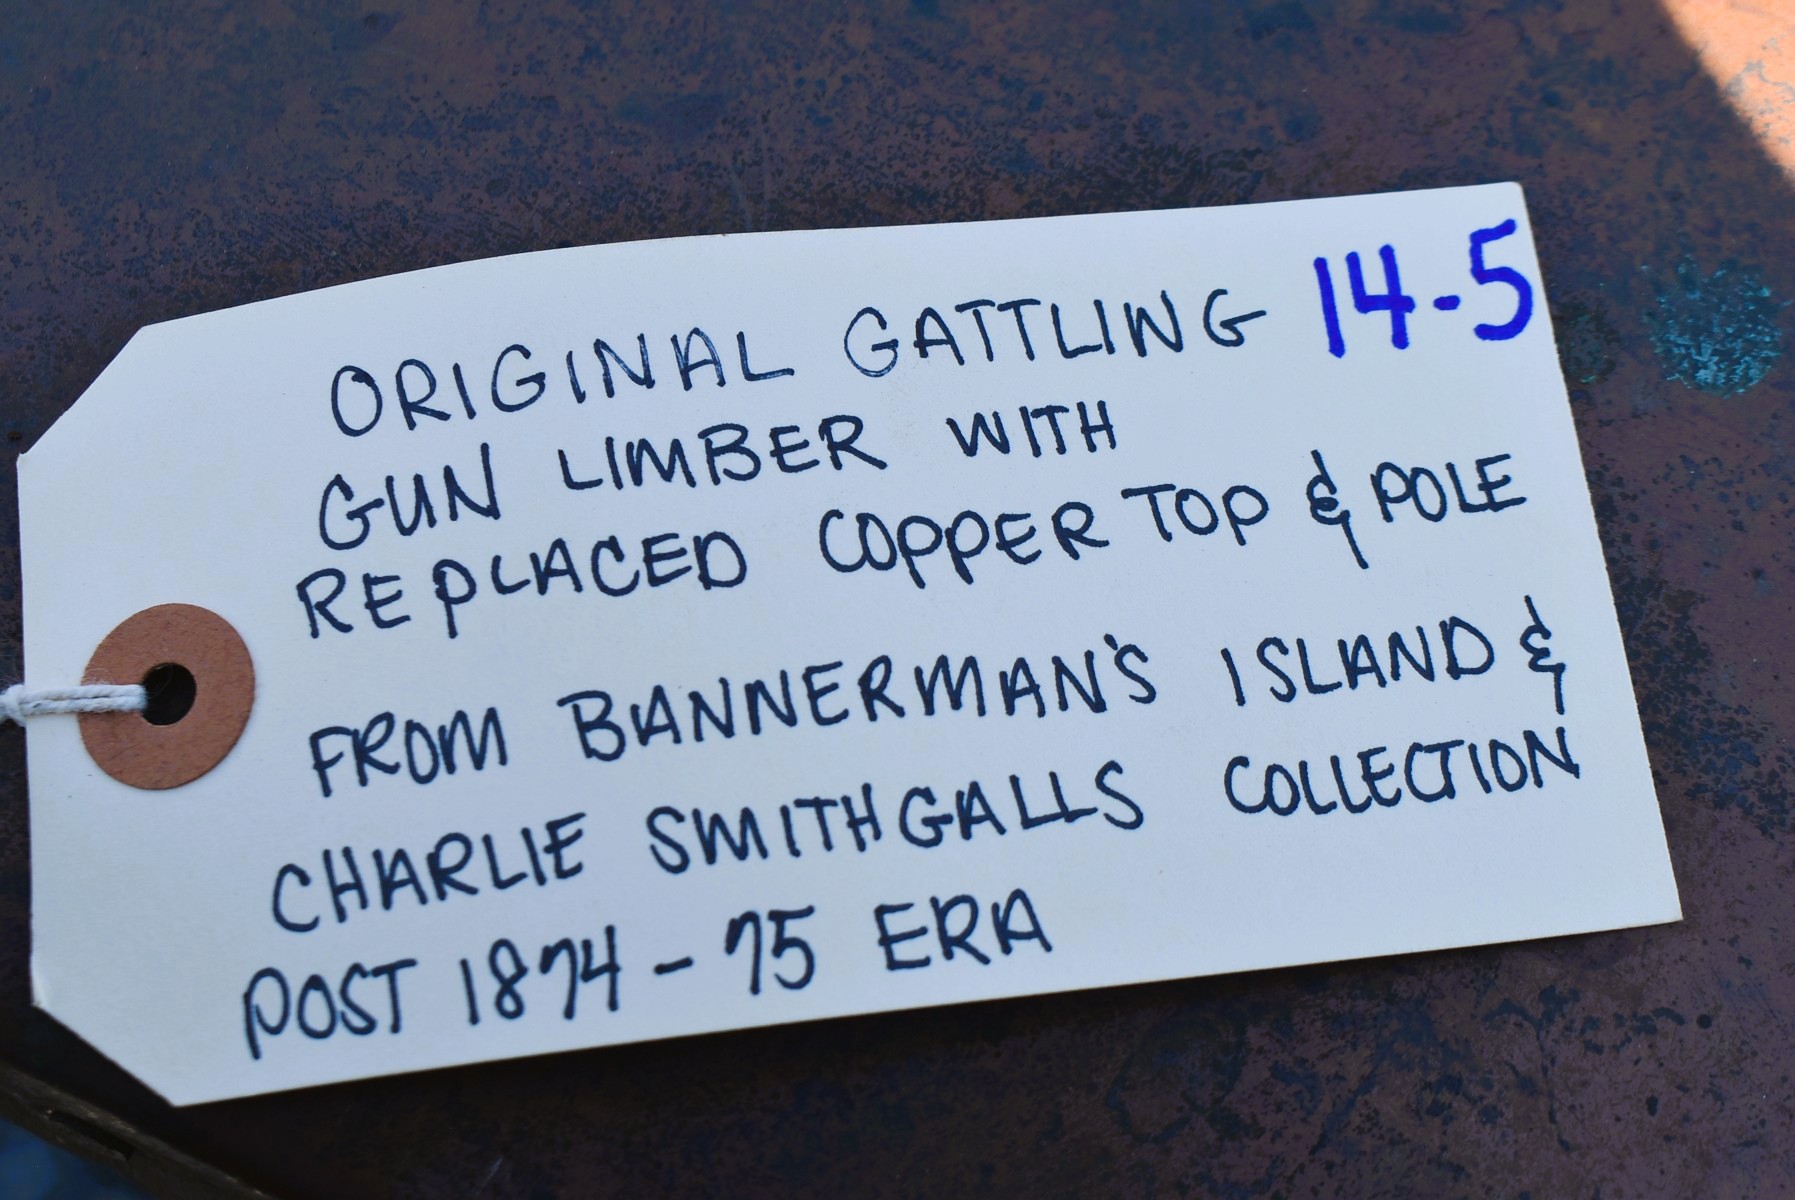 ORIGINAL GATTLING 14-5
GUN LIMBER WITH
REPLACED COPPER TOP & POLE
FROM BANNERMAN'S ISLAND &
CHARLIE SMITHGALLS COLLECTION
POST 1874-75 ERA